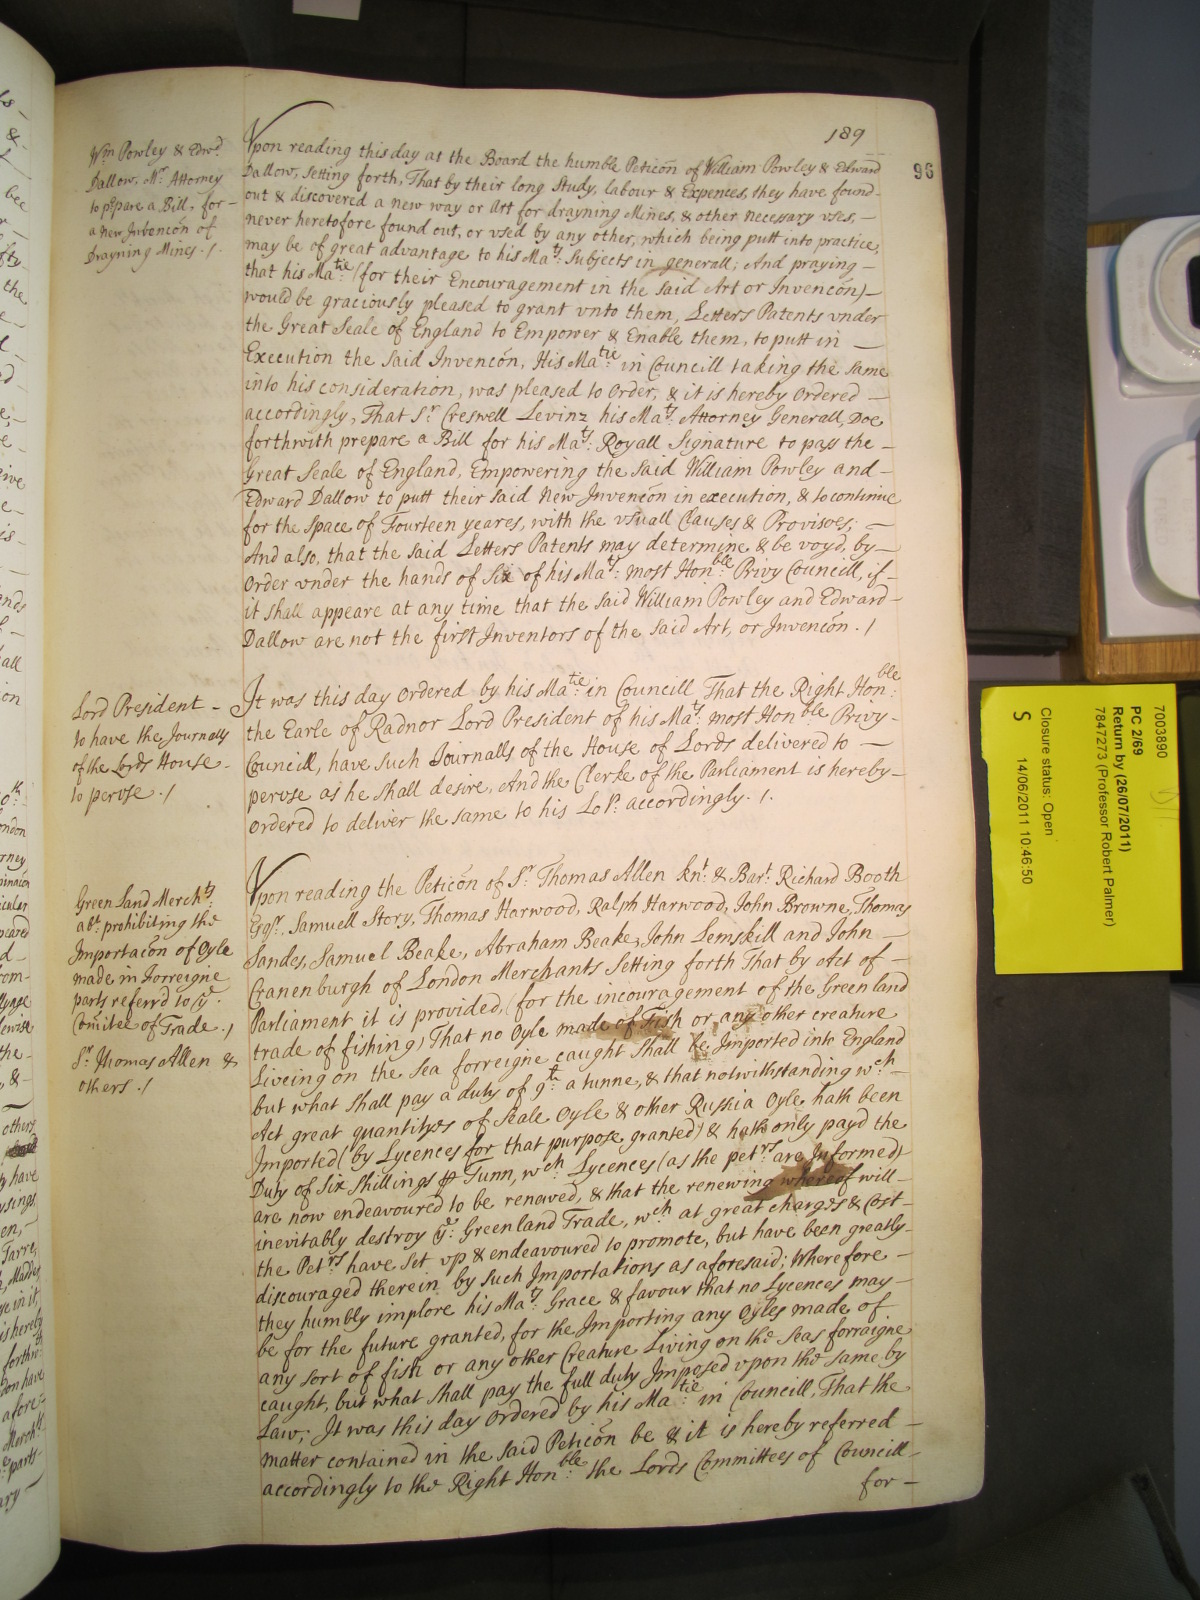 189
96
Wm Powley & Edwd
Dallow, Mr Attorney
to p̱pare a Bill, for -
a new Invencōn of
Drayning Mines . /
Vpon reading this day at the Board the humble Peticōn of William Powley & Edward
Dallow, Setting forth, That by their long Study, labour & Expences, they have found -
out & discovered a new way or Art for drayning Mines, & other necessary vses, -
never heretofore found out, or vsed by any other, which being putt into practice,
may be of great advantage to his Mats: Subjects in generall; And praying -
that his Matie (for their Encouragement in the said Art or Invencōn) -
would be graciously pleased to grant vnto them, Letters Patents vnder
the Great Seale of England to Empower & Enable them, to putt in -
Execution the said Invencōn, His Matie: in Councill taking the same
into his consideration, was pleased to Order, & it is hereby Ordered -
accordingly, That Sr. Creswell Levinz his Mats: Attorney Generall, Doe
forthwith prepare a Bill for his Mats: Royall Signature to pass the -
Great Seale of England, Empowering the said William Powley and -
Edward Dallow to putt their said New Invencōn in execution, & to continue
for the space of Fourteen yeares, with the vsuall Clauses & Provisoes; -
And also, that the said Letters Patents may determine & be voyd, by -
Order vnder the hands of Six of his Mats: most Honble Privy Councill, if -
it shall appeare at any time that the said William Powley and Edward -
Dallow are not the first Inventors of the said Art, or Invencōn . /
Lord President -
to have the Journalls
of the Lords House -
to pervse . /
It was this day Ordered by his Matie: in Councill That the Right Honble:
the Earle of Radnor Lord President of his Mats: most Honble Privy -
Councill, have such Journalls of the House of Lords delivered to -
pervse as he shall desire, And the Clerke of the Parliament is hereby -
Ordered to deliver the same to his Lop: accordingly . / .
Greenland Merchts:
abt: prohibiting the
Importacōn of Oyle
made in Forreigne
parts referrd to ye:
Com̄itee of Trade . /
Sr Thomas Allen &
others . /
Vpon reading the Peticōn of Sr. Thomas Allen knt: & Bart: Richard Booth
Esqr. Samuell Story, Thomas Harwood, Ralph Harwood, John Browne, Thomas
Sandes, Samuel Beake, Abraham Beake, John Lemskill and John -
Cranenburgh of London Merchants Setting forth That by Act of -
Parliament it is provided, (for the incouragement of the Greenland
trade of fishing) That no Oyle made of Fish or any other creature
Liveing on the Sea forreigne caught shall be Imported into England
but what shall pay a duty of 9li: a tunne, & that notwithstanding wch -
Act great quantityes of Seale Oyle & other Russia Oyle hath been
Imported (by Lycences for that purpose granted) & hath only payd the
Duty of Six shillings ⅌ Tunn, wch Lycences (as the petrs are Informed)
are now endeavoured to be renewed, & that the renewing whereof will -
inevitably destroy ye: Greenland Trade, wch at great charges & Cost -
the Petrs have set vp & endeavoured to promote, but have been greatly -
discouraged therein by such Importations as aforesaid; Wherefore -
they humbly implore his Mats: Grace & favour that no Lycences may -
be for the future granted, for the Importing any Oyles made of
any sort of fish or any other Creature Living on the Seas forraigne
caught, but what shall pay the full duty Imposed vpon the same by
Law; It was this day Ordered by his Matie: in Councill, That the
matter contained in the said Peticōn be & it is hereby referred -
accordingly to the Right Honble: the Lords Committees of Councill -
for -
7003890
PC 2/69
Return by (26/07/2011)
7847273 (Professor Robert Palmer)
Closure status: Open
S
14/06/2011 10:46:50